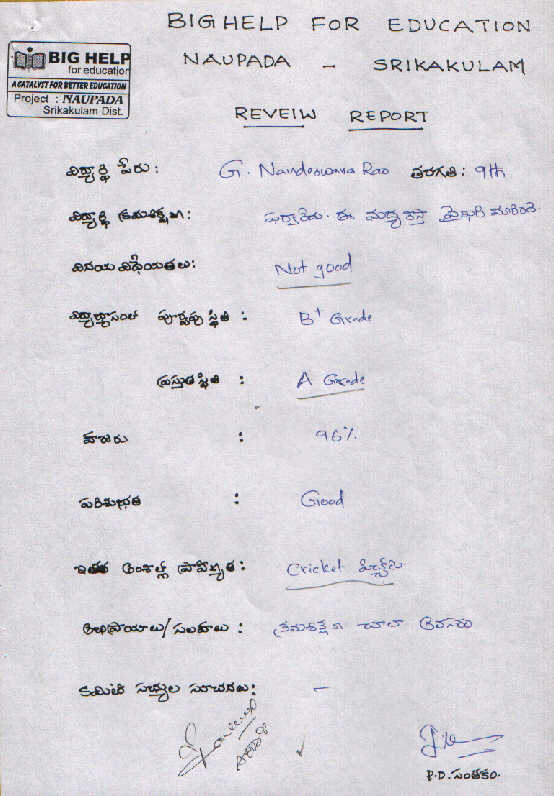 BIG HELP FOR EDUCATION
NAUPADA - SRIKAKULAM
BIG HELP
for education
A CATALYST FOR BETTER EDUCATION
Project : NAUPADA
Srikakulam Dist.
REVEIW REPORT
విద్యార్థి పేరు : G. Nandeswara Rao తరగతి : 9th
విద్యార్థి క్రమశిక్షణ : ఈ మధ్య
వినయ విధేయతలు : Not good
పూర్వపు స్థితి : B+ Grade
ప్రస్తుత స్థితి : A Grade
హాజరు : 96%
పరిశుభ్రత : Good
ఇతర అంశాల్లో ప్రావీణ్యత : Cricket
అభిప్రాయాలు/సలహాలు : క్రమశిక్షణ చాలా అవసరం
కమిటీ సభ్యుల సూచనలు : -
P.D. సంతకం.